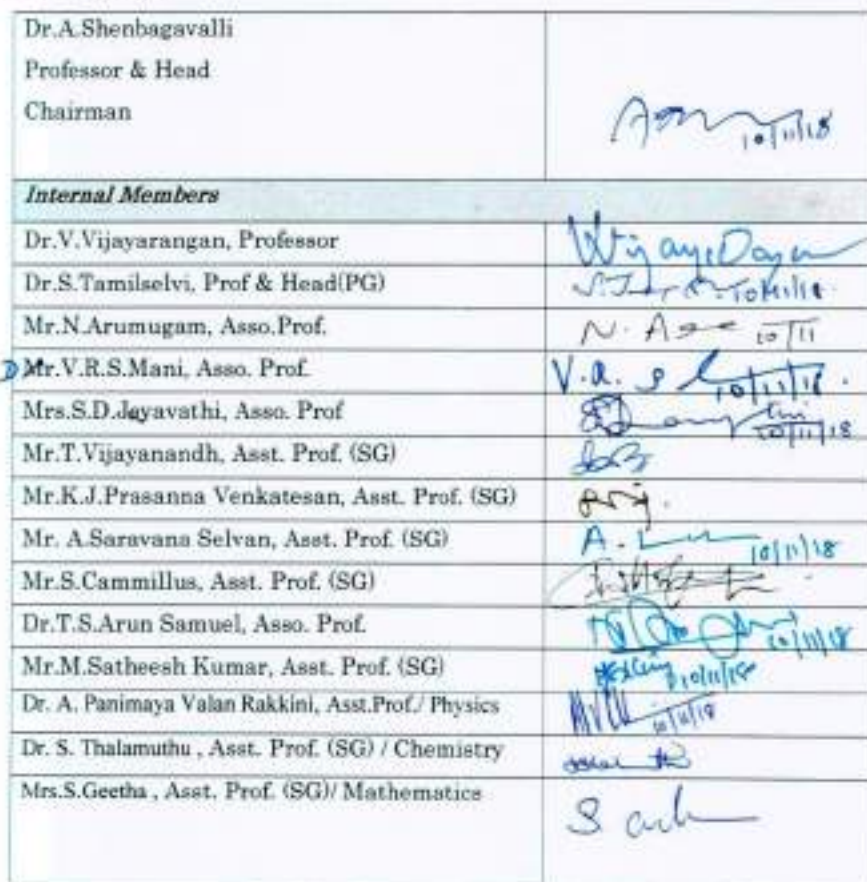 Dr.A.Shenbagavalli
Professor & Head
Chairman
10/11/18
Internal Members
Dr.V.Vijayarangan, Professor
Dr.S.Tamilselvi, Prof & Head(PG)
10/11/18
Mr.N.Arumugam, Asso.Prof.
N. A 10/11
Mr.V.R.S.Mani, Asso. Prof.
10/11/18
Mrs.S.D.Jayavathi, Asso. Prof
10/11/18
Mr.T.Vijayanandh, Asst. Prof. (SG)
Mr.K.J.Prasanna Venkatesan, Asst. Prof. (SG)
Mr. A.Saravana Selvan, Asst. Prof. (SG)
A. 10/11/18
Mr.S.Cammillus, Asst. Prof. (SG)
Dr.T.S.Arun Samuel, Asso. Prof.
10/11/18
Mr.M.Satheesh Kumar, Asst. Prof. (SG)
10/11/18
Dr. A. Panimaya Valan Rakkini, Asst.Prof./ Physics
10/11/18
Dr. S. Thalamuthu , Asst. Prof. (SG) / Chemistry
Mrs.S.Geetha , Asst. Prof. (SG)/ Mathematics
S.